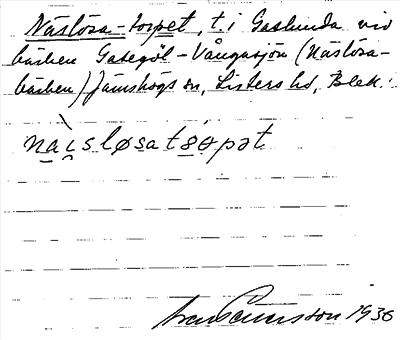 Näslösa-torpet, t. i Gaslunda vid
bäcken Gasegöl - Vångasjön (Näslösa-
bäcken) Jämshögs sn, Listers hd, Blek.
nàisløsatɞɵpət
Sven Benson 1936